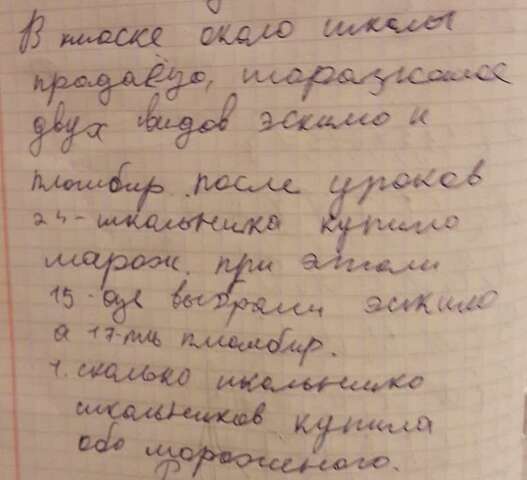 В киоске около школы
продаётся, мороженое
двух видов эскимо и
пломбир после уроков
24-школьника купило
морож. при этом
15-еро выбрали эскимо
а 17-ть пломбир.
1. сколько школьнико
школьников купила
оба мороженого.